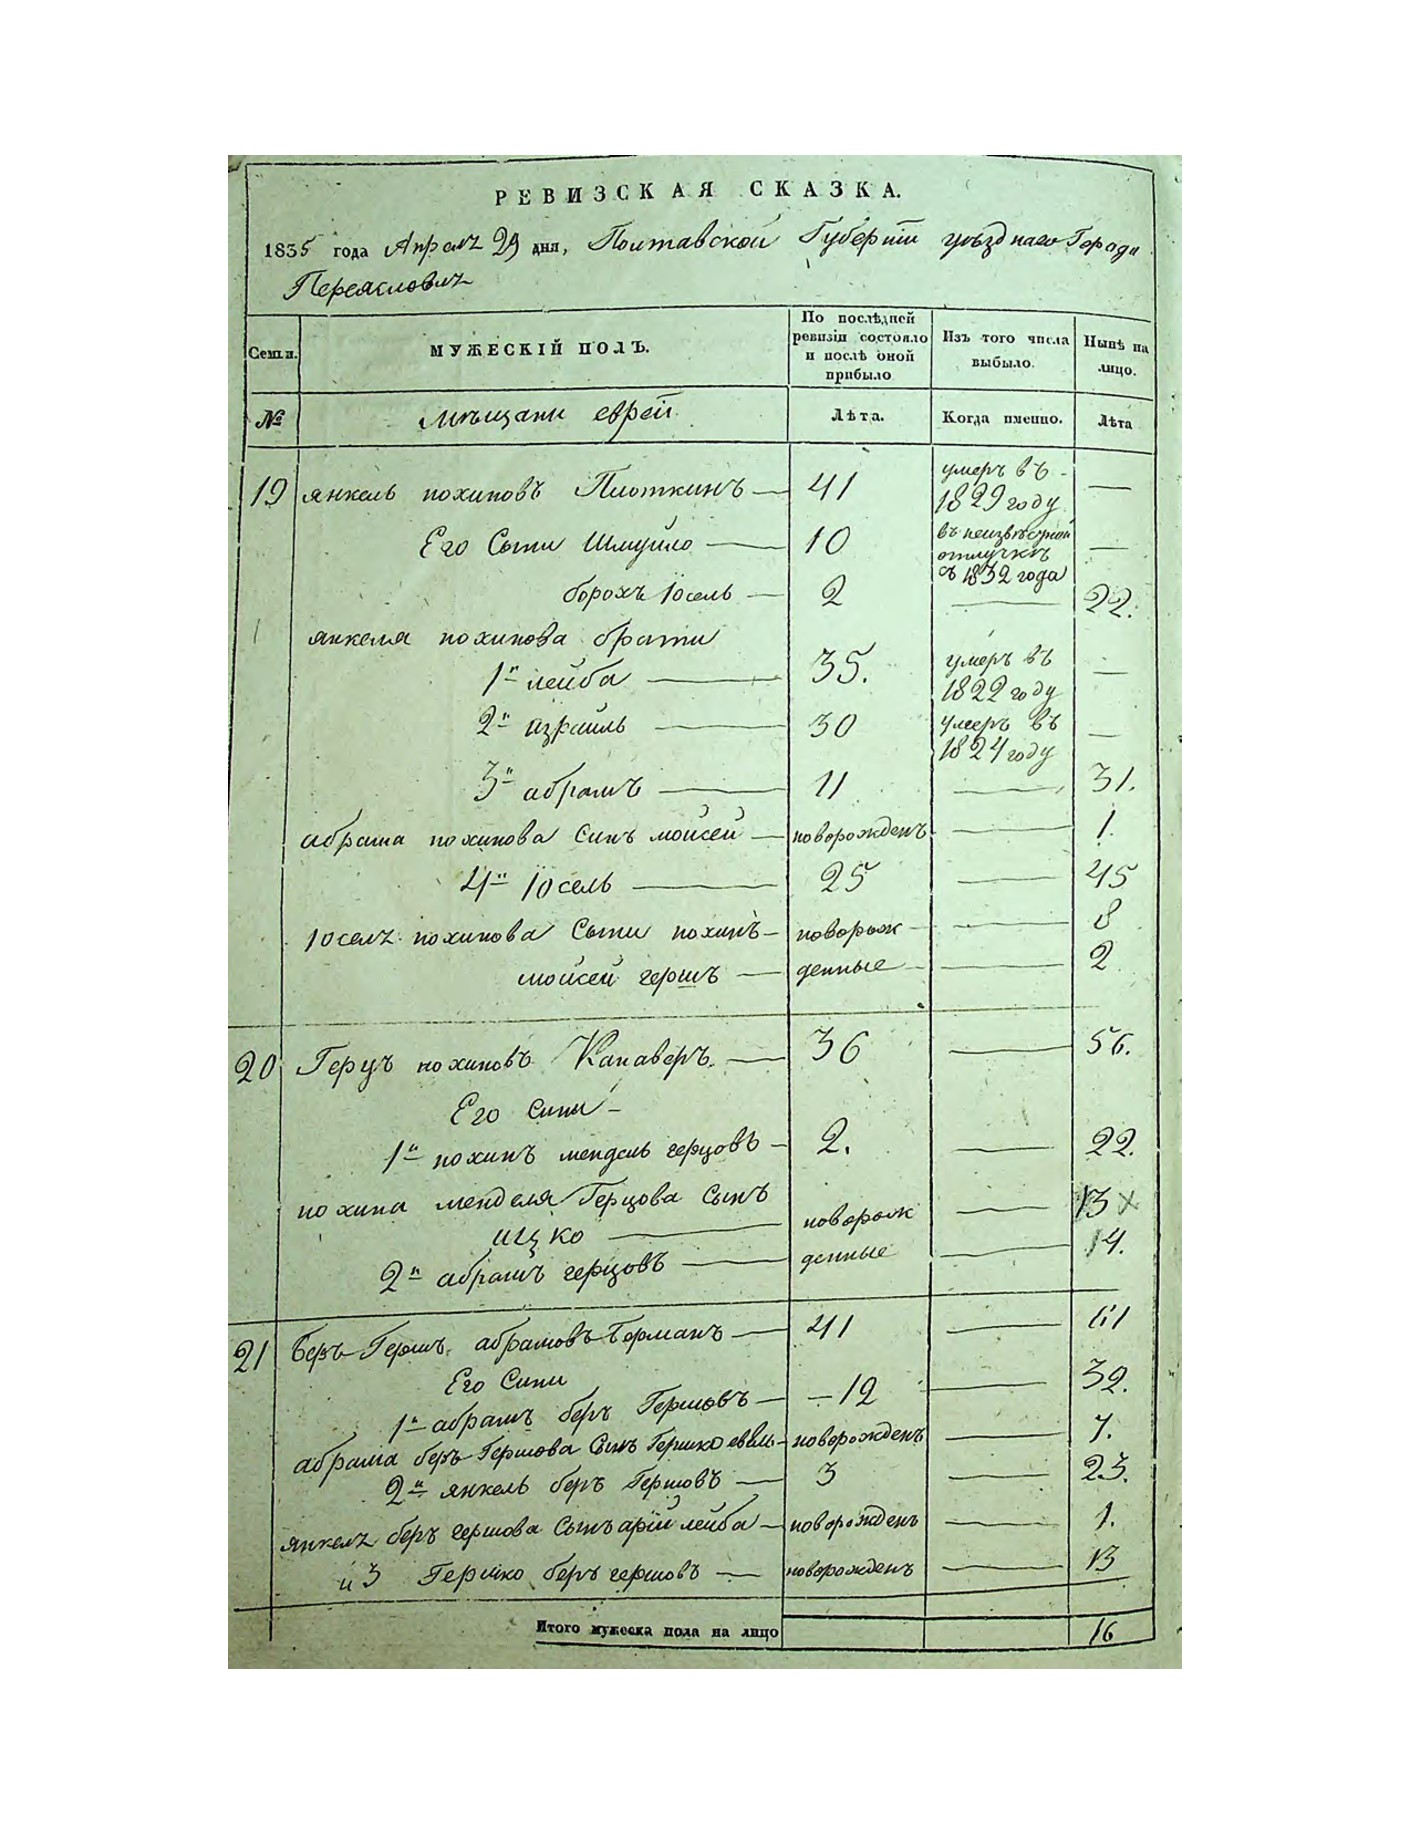 РЕВИЗСКАЯ СКАЗКА.
1835 года Апрелъ 29 дня, Полтавской Губернiи уѣзднаго Города
Переясловлъ
Семьи.
МУЖЕСКIЙ ПОЛЪ.
По послѣдней ревизiи состояло и послѣ оной прибыло
Изъ того числа выбыло.
Нынѣ на лицо.
№
Мѣщани еврей
Лѣта.
Когда именно.
Лѣта
19 янкель нохимовъ Плоткинъ — 41 умеръ въ 1829 году —
Его Сыни Шмуйло — 10 въ неизвѣстной отлучкѣ съ 1832 года —
борохъ Iосель — 2 — 22.
янкеля нохимова брати
1й лейба — 35. умеръ въ 1822 году —
2й израиль — 30 умеръ въ 1824 году —
3й абрамъ — 11 — 31.
абрама нохимова Синъ мойсей — новорожденъ — 1.
4й Iосель — 25 — 45
Iоселъ нохимова Сыни нохимъ — новорож — 8
мойсей гершъ — денные — 2
20 Герцъ нохимовъ Канаверъ. — 36 — 56.
Его Сини —
1й нохимъ мендель герцовъ — 2. — 22.
нохима менделя Герцова Сынъ
ицко — новорож — 13 х
2й абрамъ герцовъ — денные — 14.
21 Беръ Гершъ абрамовъ Борманъ — 41 — 61
Его Сини
1й абрамъ беръ Гершовъ — 12 — 32.
абрама беръ Гершова Сынъ Гершко — новорожденъ — 7.
2й янкель беръ Гершовъ — 3 — 23.
янкелъ беръ гершова Сынъ арiй лейба — новорожденъ — 1.
и 3 Гершко беръ гершовъ — новорожденъ — 13
Итого мужеска пола на лицо 16